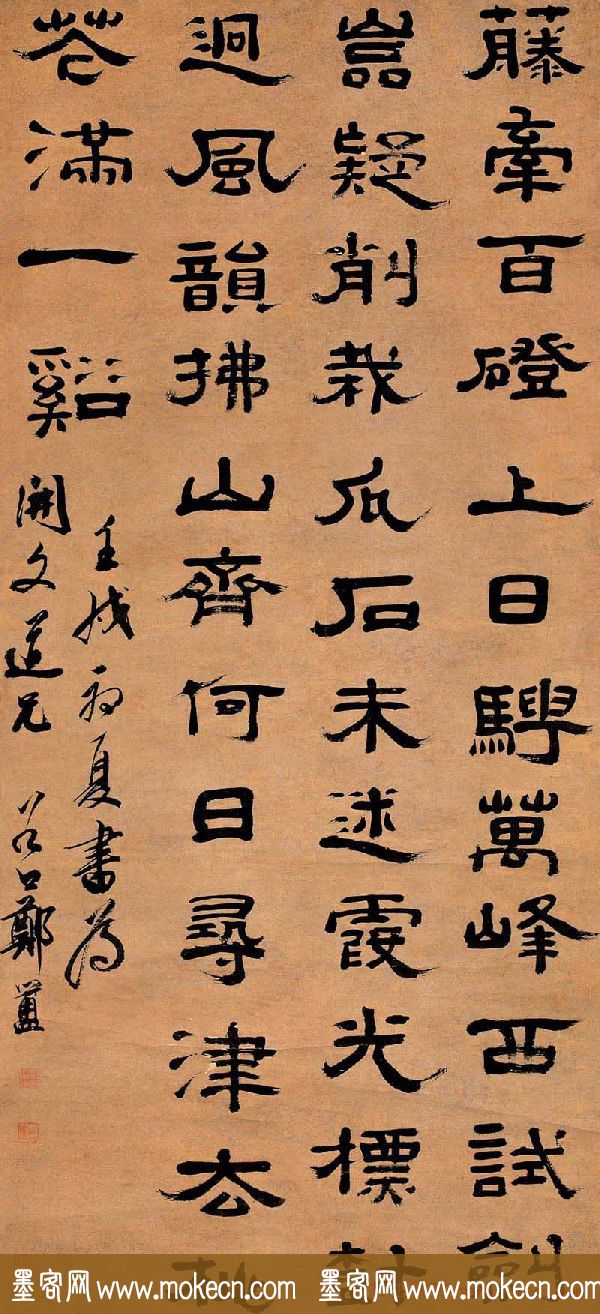 藤牽百磴上日騁萬峰西試劍
嵓疑削栽瓜石未迷霞光標
迴風韻拂山齊何日尋津去
花滿一谿
壬戌初夏書為
開文道兄 谷口鄭簠
墨客网 www.mokecn.com 墨客网 www.mokecn.com